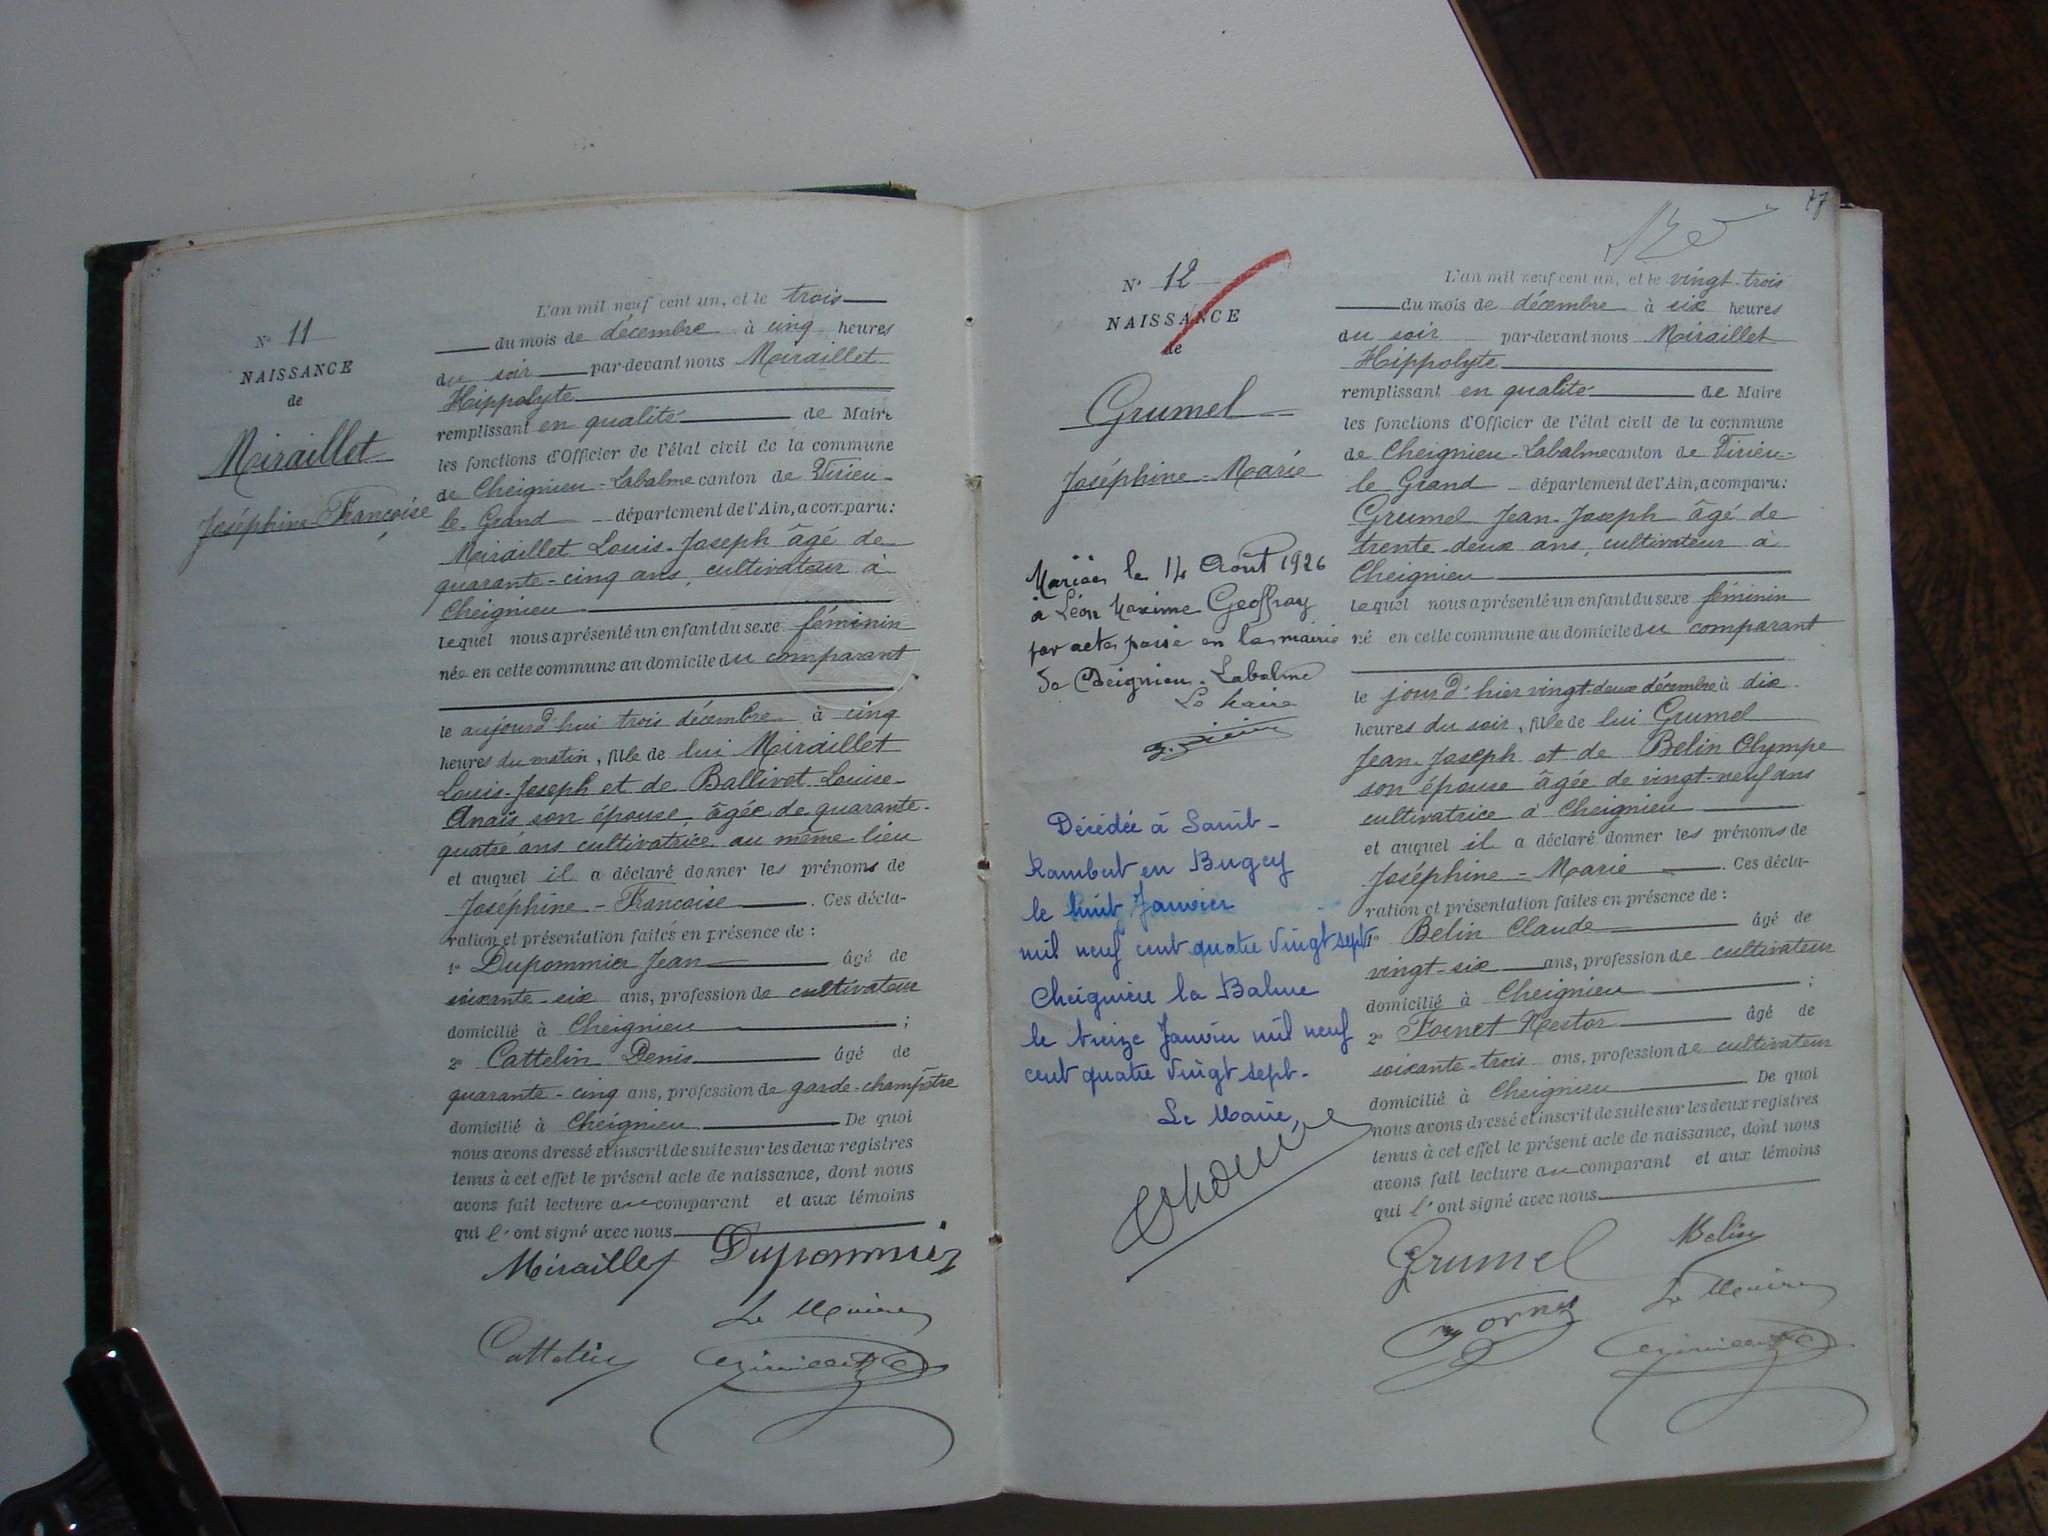 N° 11
NAISSANCE
de
Miraillet
Joséphine-Françoise
L'an mil neuf cent un, et le trois
du mois de décembre à cinq heures
du soir par-devant nous Miraillet
Hippolyte
remplissant en qualité de Maire
les fonctions d'Officier de l'état civil de la commune
de Cheignieu-Labalme canton de Virieu-
le-Grand département de l'Ain, a comparu:
Miraillet Louis-Joseph âgé de
quarante-cinq ans, cultivateur à
Cheignieu
lequel nous a présenté un enfant du sexe féminin
née en cette commune au domicile du comparant
le aujourd'hui trois décembre à cinq
heures du matin, fille de lui Miraillet
Louis-Joseph et de Ballivet Louise-
Anaïs son épouse, âgée de quarante-
quatre ans cultivatrice au même lieu
et auquel il a déclaré donner les prénoms de
Joséphine-Francoise. Ces décla-
ration et présentation faites en présence de:
1° Dupommier Jean âgé de
soixante-six ans, profession de cultivateur
domicilié à Cheignieu;
2° Cattelin Denis âgé de
quarante-cinq ans, profession de garde-champêtre
domicilié à Cheignieu De quoi
nous avons dressé et inscrit de suite sur les deux registres
tenus à cet effet le présent acte de naissance, dont nous
avons fait lecture au comparant et aux témoins
qui l'ont signé avec nous
Miraillet Dupommier
Le Maire
Cattelin
47
N° 12
NAISSANCE
de
Grumel
Joséphine-Marie
Mariée le 14 Août 1926
à Léon Maxime Geoffray
par acte passé en la mairie
de Cheignieu-Labalme
Le Maire
Décédée à Saint-
Rambert en Bugey
le huit Janvier
mil neuf cent quatre vingt sept
Cheignieu la Balme
le treize Janvier mil neuf
cent quatre vingt sept.
Le Maire,
L'an mil neuf cent un, et le vingt-trois
du mois de décembre à six heures
du soir par-devant nous Miraillet
Hippolyte
remplissant en qualité de Maire
les fonctions d'Officier de l'état civil de la commune
de Cheignieu-Labalme canton de Virieu-
le Grand département de l'Ain, a comparu:
Grumel Jean-Joseph âgé de
trente-deux ans, cultivateur à
Cheignieu
lequel nous a présenté un enfant du sexe féminin
né en cette commune au domicile du comparant
le jour d'hier vingt-deux décembre à dix
heures du soir, fille de lui Grumel
Jean-Joseph et de Belin Olympe
son épouse âgée de vingt-neuf ans
cultivatrice à Cheignieu
et auquel il a déclaré donner les prénoms de
Joséphine-Marie. Ces décla-
ration et présentation faites en présence de:
1° Belin Claude âgé de
vingt-six ans, profession de cultivateur
domicilié à Cheignieu;
2° Fornet Nestor âgé de
soixante-trois ans, profession de cultivateur
domicilié à Cheignieu De quoi
nous avons dressé et inscrit de suite sur les deux registres
tenus à cet effet le présent acte de naissance, dont nous
avons fait lecture au comparant et aux témoins
qui l'ont signé avec nous
Grumel Belin
Le Maire